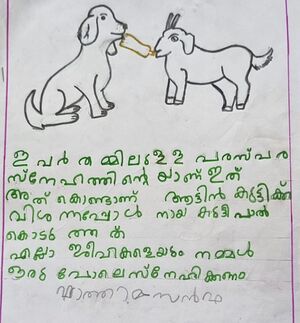 ഇ പർ തമ്മിലുള്ള പരസ്പര
സ്നേഹത്തിൻ്റെ യാണ് ഇത്
അത് കൊണ്ടാണ് ആട്ടിൻ കുട്ടിക്ക്
വിശ ന്നപ്പോൾ നായ കുട്ടി പാൽ
കൊടു ത്ത ത്
എല്ലാ ജീവികളെയും നമ്മൾ
ഒരു പോലെ സ്നേഹിക്കണം